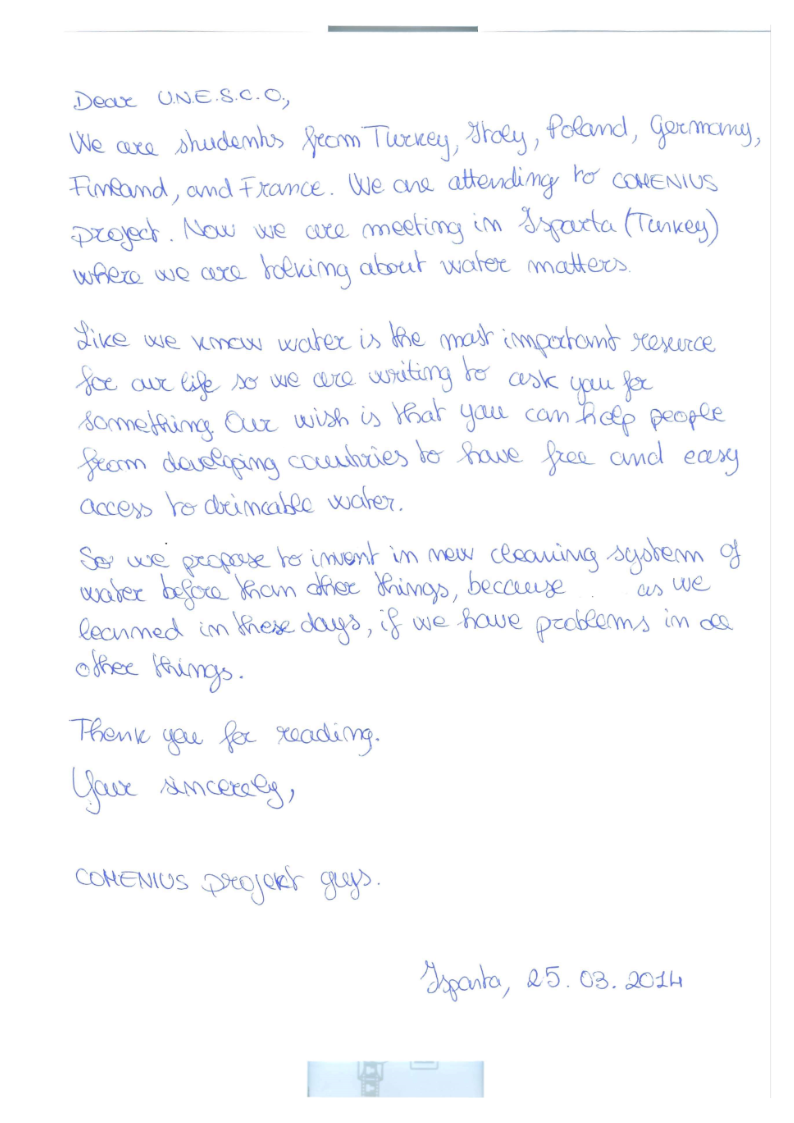 Dear U.N.E.S.C.O.,
We are students from Turkey, Italy, Poland, Germany,
Finland, and France. We are attending to COMENIUS
project. Now we are meeting in Isparta (Turkey)
where we are talking about water matters.
Like we know water is the most important resource
for our life so we are writing to ask you for
something Our wish is that you can help people
from developing countries to have free and easy
access to drincable water.
So we propose to invent in new cleaning system of
water before than other things, because as we
learned in these days, if we have problems in all
other things.
Thank you for reading.
Your sincerely,
COMENIUS projekt guys.
Isparta, 25.03.2014